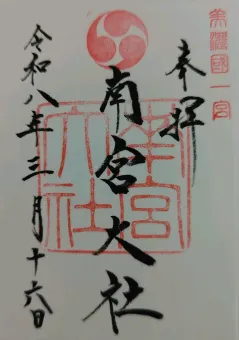 美濃國一宮
奉拝
南宮大社
南宮大社
令和八年三月十六日